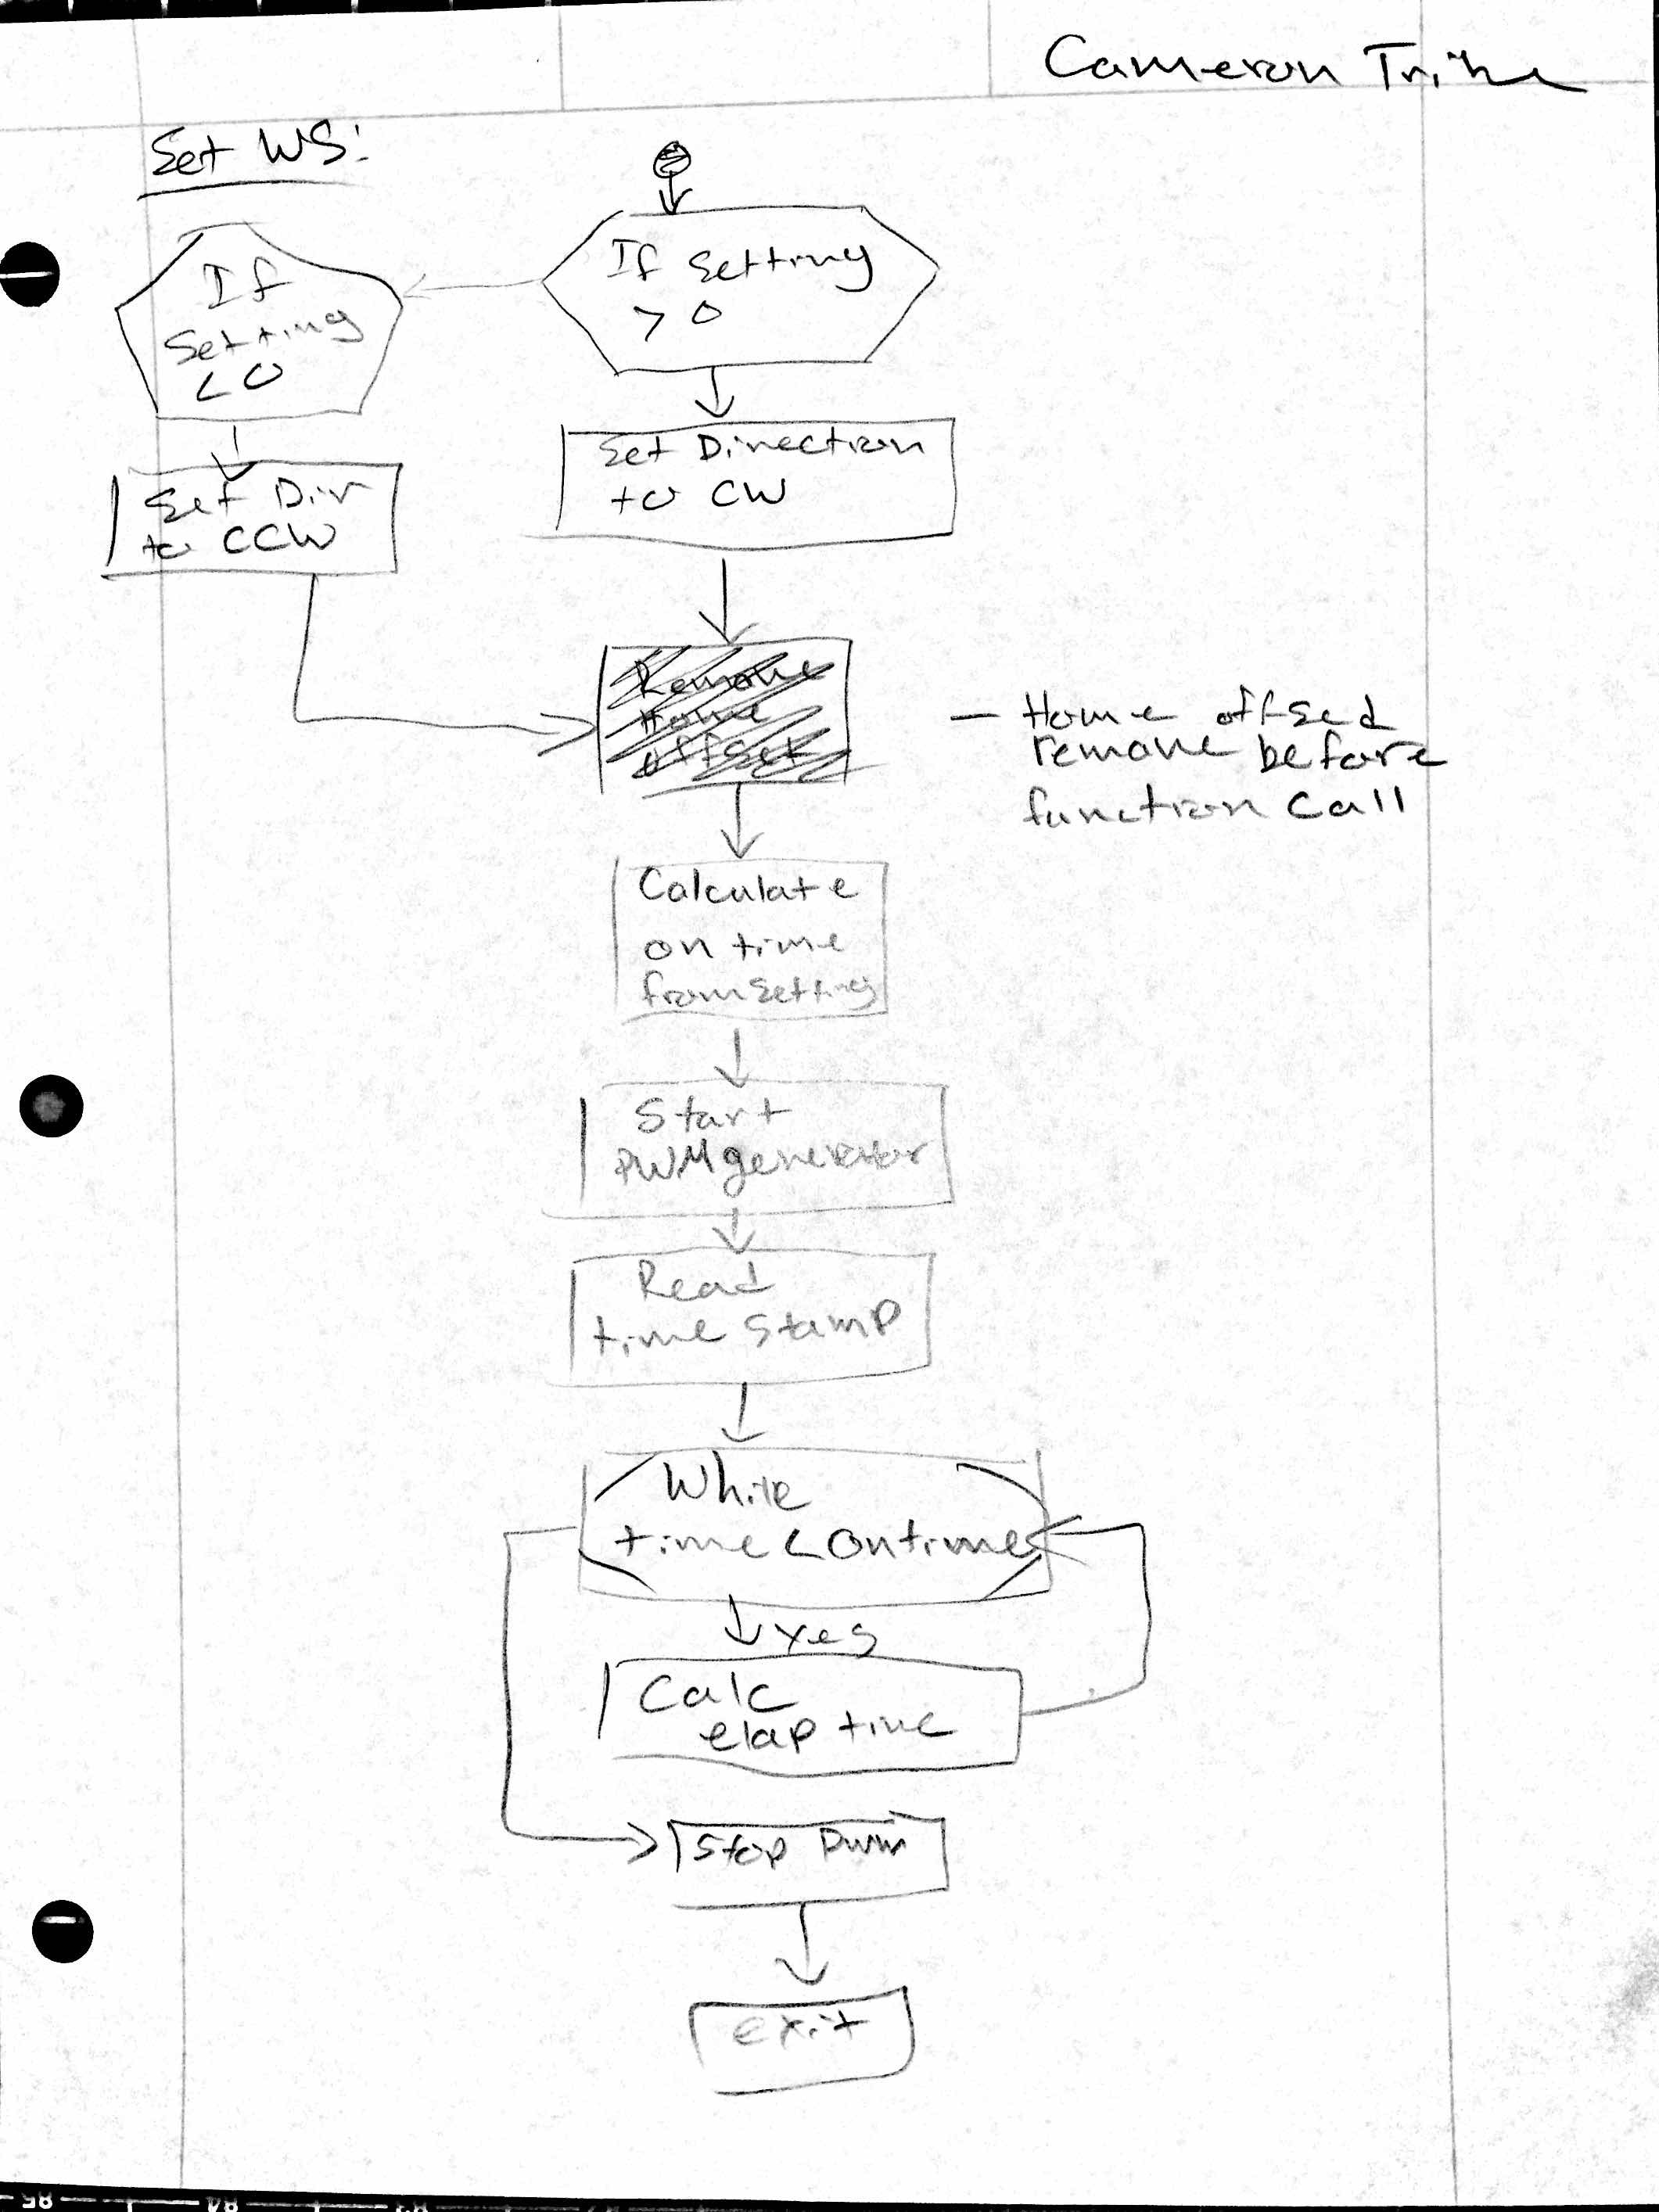 Cameron
Set WS:
If Setting
> 0
If
Setting
< 0
Set Direction
to CW
Set Dir
to CCW
Remove
Home
offset
— Home offsed
remove before
function call
Calculate
on time
from setting
Start
PWM generator
Read
time stamp
While
time < Ontime
yes
Calc
elap time
Stop Pwm
exit